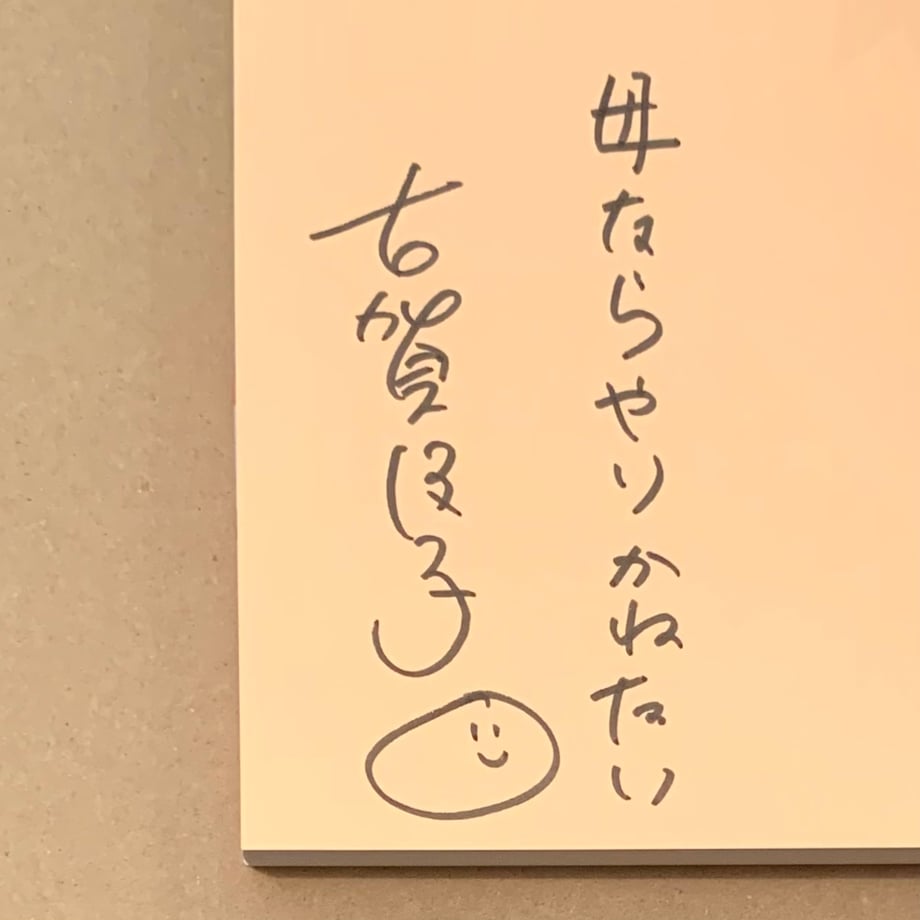 母ならやりかねない
古賀及子